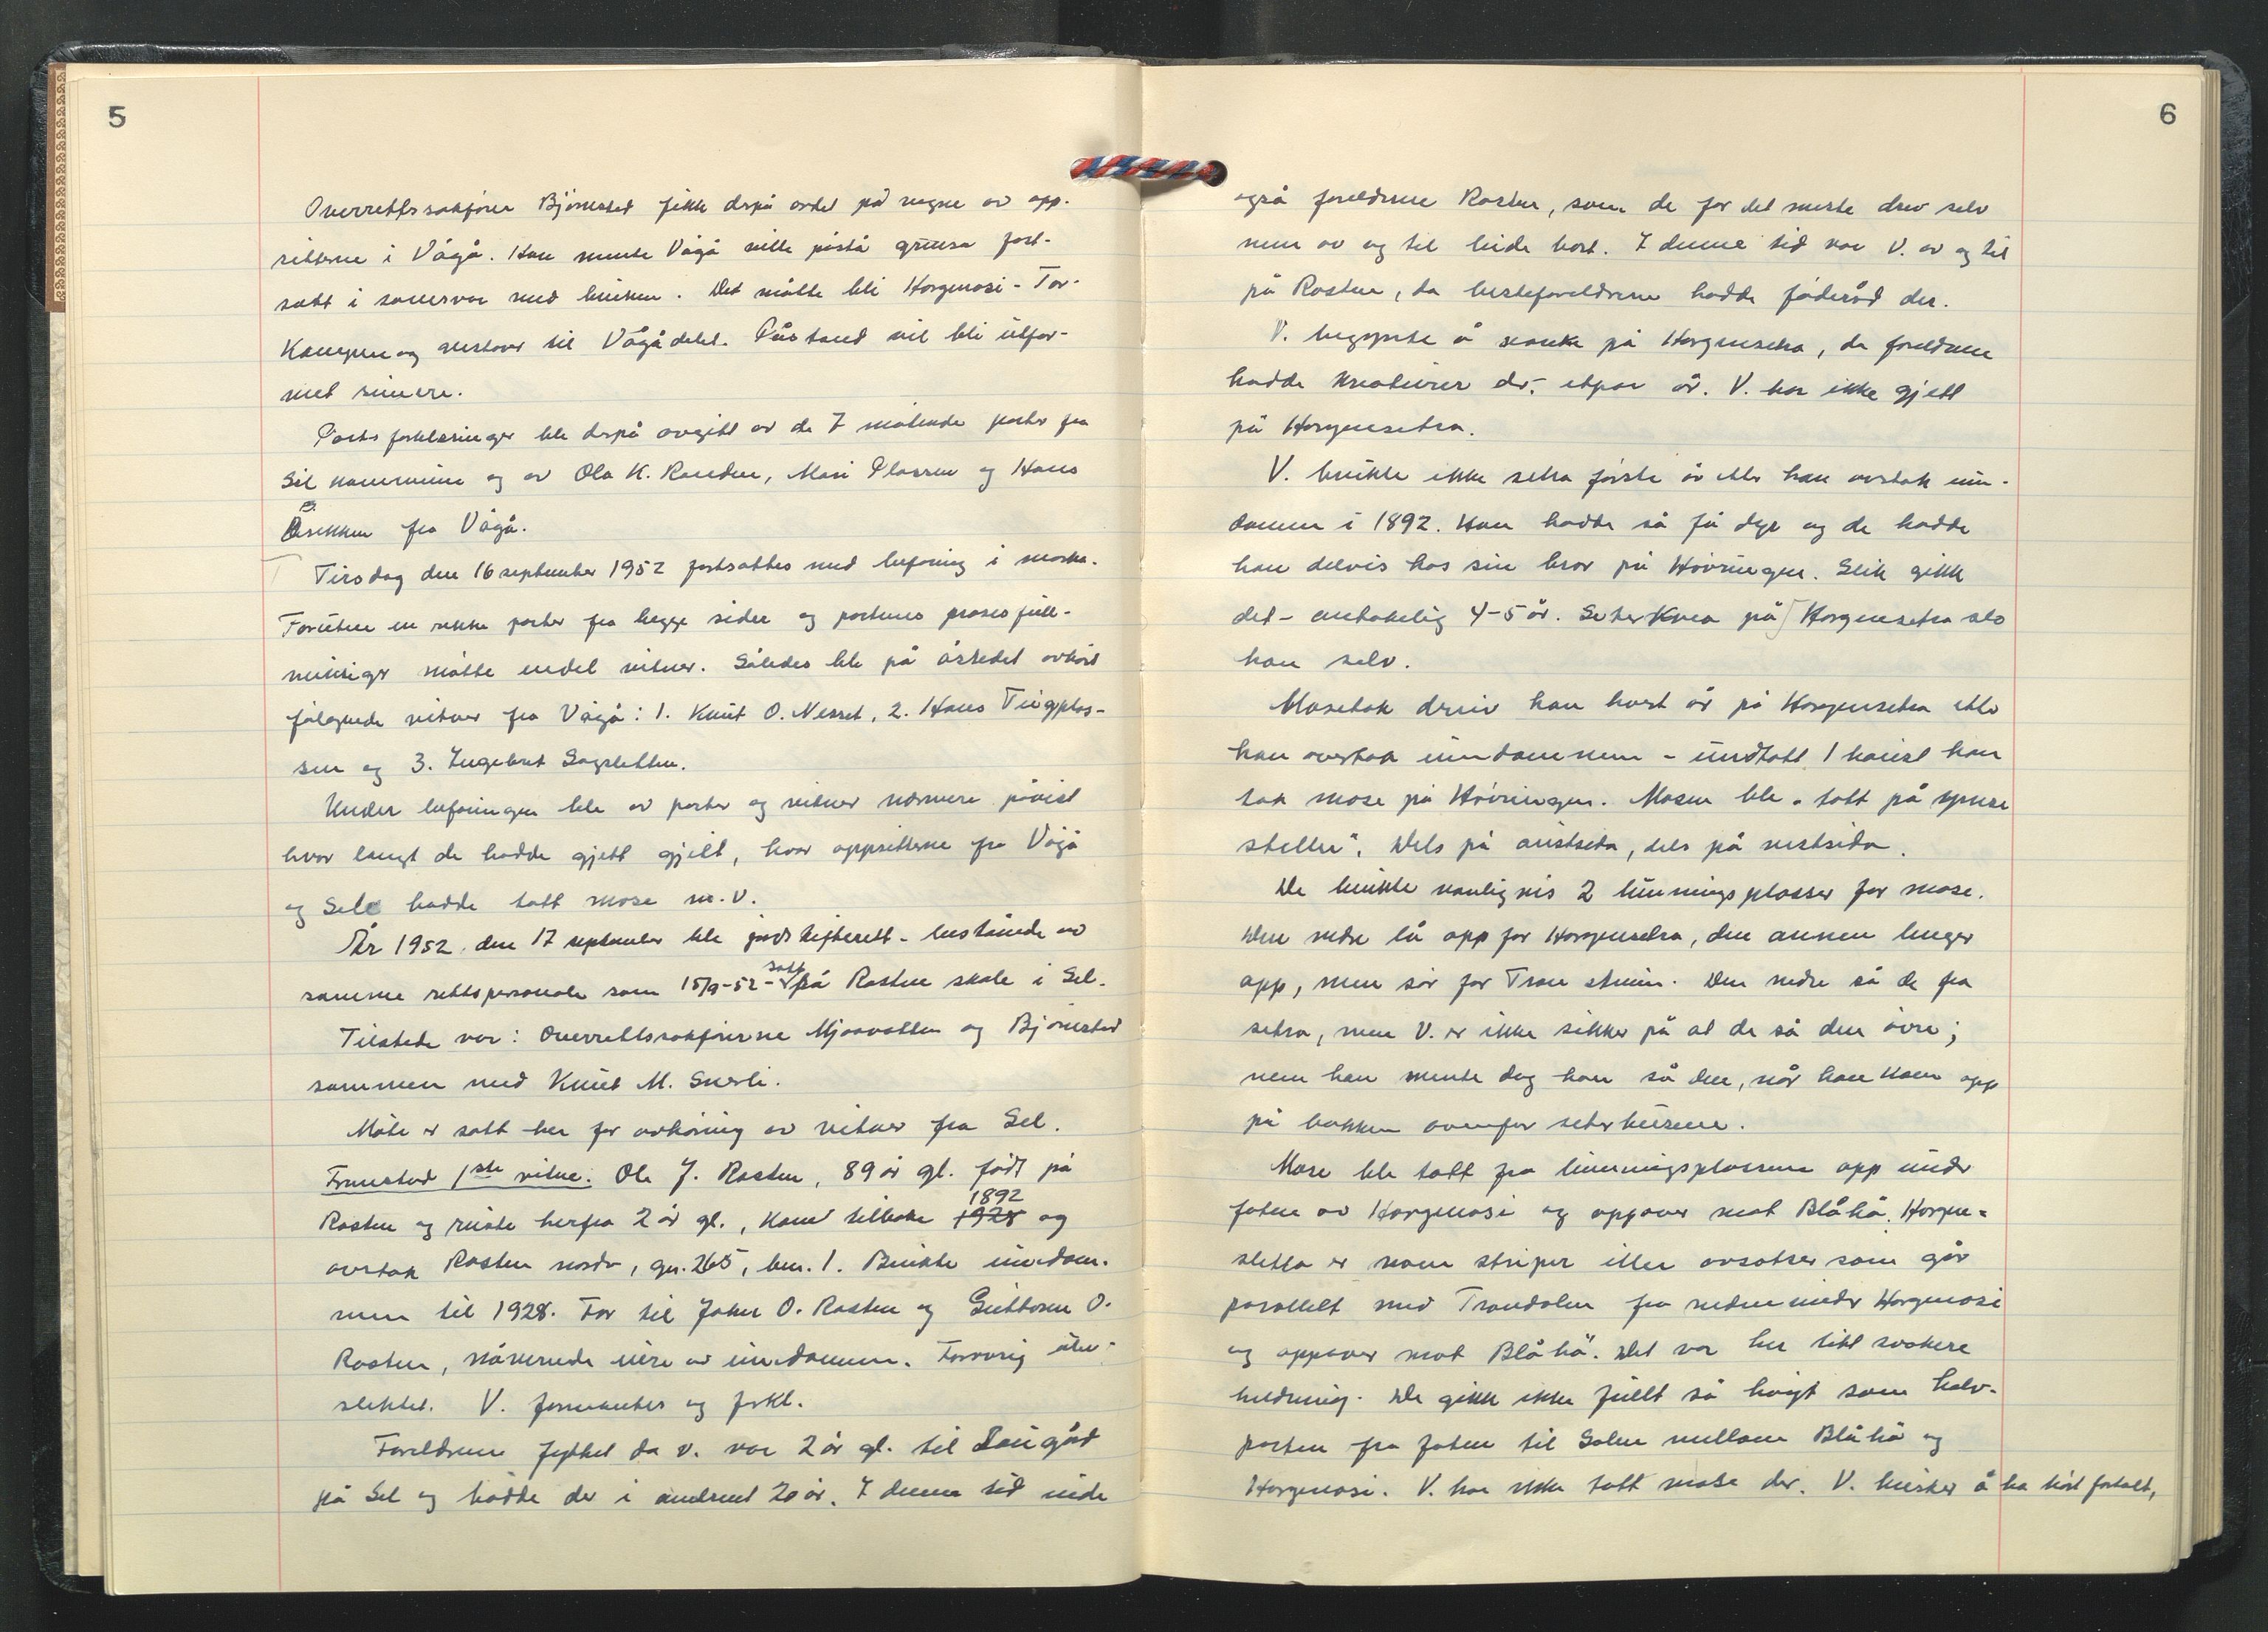 5
Overrettssakfører Bjørnstad fikk derpå ordet på vegne av opp-
sitterne i Vågå. Han mente Vågå ville påstå grensa fast-
satt i samsvar med bruken. Det måtte bli Horgenosi - Tor-
kampen og austover til Vågådelet. Påstand vil bli utfor-
met senere.
Partsforklaringer ble derpå avgitt av de 7 møtende parter fra
Sel kommune og av Ola K. Randen, Mari Plassen og Hans
fra Vågå.
Tirsdag den 16 september 1952 fortsattes med befaring i marka.
Foruten en rekke parter fra begge sider og partenes prosessfull-
mektiger møtte endel vitner. Således ble på åstedet avhørt
følgende vitner fra Vågå: 1. Knut O. Nesset, 2. Hans Tingplas-
sen og 3. Ingebret Sagsletten.
Under befaringen ble av parter og vitner nærmere påvist
hvor langt de hadde gjett gjelt, hvor oppsitterne fra Vågå
og Sel hadde tatt mose m.v.
År 1952 den 17 september ble jordskifterett - bestående av
samme rettspersonale som 15/9-52 - satt på Rosten skole i Sel.
Tilstede var: Overrettssakførerne Mjaavatten og Bjørnstad
sammen med Knut M. Snerli.
Møte er satt her for avhøring av vitner fra Sel.
Framstod 1ste vitne: Ole J. Rosten, 89 år gl. født på
Rosten og reiste herfra 2 år gl., kom tilbake 1928 1892 og
overtok Rosten nordre, gnr. 265, bnr. 1. Brukte eiendom-
men til 1928. Far til Joken O. Rosten og Guttorm O.
Rosten, nåværende eiere av eiendommen. Forøvrig uten-
slektet. V. formantes og forkl.
Foreldrene flyttet da v. var 2 år gl. til Laugård
på Sel og budde der i omtrent 20 år. I denne tid eide
6
også foreldrene Rosten, som de for det meste drev selv
men av og til leide bort. I denne tid var V. av og til
på Rosten, da besteforeldrene hadde føderåd der.
V. begynte å sanke på Horgensetra, da foreldrene
hadde kreaturer der - etpar år. V. har ikke gjett
på Horgensetra.
V. brukte ikke setra første år etter han overtok eien-
dommen i 1892. Han hadde så få dyr og de hadde
han delvis hos sin bror på Høvringen. Slik gikk
det - antakelig 4-5 år. Seterkvea på Horgensetra slo
han selv.
Mosetak dreiv han hvert år på Horgensetra etter
han overtok eiendommen - undtatt 1 haust han
tok mose på Høvringen. Mosen ble "tatt på ymse
steller", dels på austsida, dels på vestsida.
De brukte vanligvis 2 lunningsplasser for mose.
Den nedre lå opp for Horgensetra, den annen lenger
opp, men sør for Tron stuin. Den nedre så de fra
setra, men V. er ikke sikker på at de så den øvre;
men han mente dog han så den, når han kom opp
på bakken ovenfor seterhusene.
Mose ble tatt fra lunningsplassene opp under
foten av Horgenosi og oppover mot Blåhø. Horgen-
sletta er noen striper eller avsatser som går
parallelt med Trondalen fra nedenunder Horgenosi
og oppover mot Blåhø. Det var her litt svakere
heldning. De gikk ikke fullt så høgt som halv-
parten fra foten til Salen mellom Blåhø og
Horgenosi. V. har ikke tatt mose der. V. husker å ha hørt fortalt,